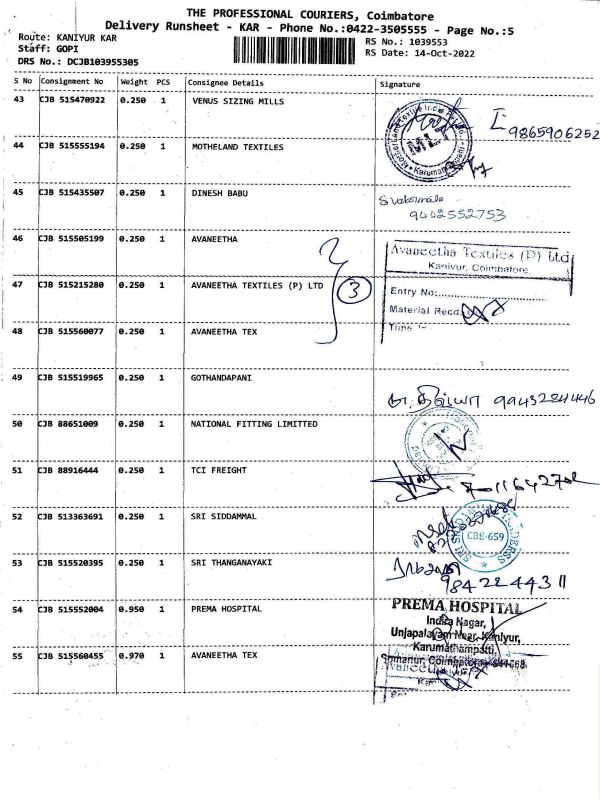 THE PROFESSIONAL COURIERS, Coimbatore
Delivery Runsheet - KAR - Phone No.:0422-3505555 - Page No.:5
Route: KANIYUR KAR
RS No.: 1039553
Staff: GOPI
RS Date: 14-Oct-2022
DRS No.: DCJB103955305
S No Consignment No Weight PCS Consignee Details Signature
43 CJB 515470922 0.250 1 VENUS SIZING MILLS
9865906252
44 CJB 515555194 0.250 1 MOTHELAND TEXTILES
MLT
45 CJB 515435507 0.250 1 DINESH BABU
9442552753
46 CJB 515505199 0.250 1 AVANEETHA
Avaneetha Textiles (P) Ltd
Kaniyur, Coimbatore
47 CJB 515215280 0.250 1 AVANEETHA TEXTILES (P) LTD
3
Entry No:
Material Recd.
Time :-
48 CJB 515560077 0.250 1 AVANEETHA TEX
49 CJB 515519965 0.250 1 GOTHANDAPANI
9943284446
50 CJB 88651009 0.250 1 NATIONAL FITTING LIMITTED
51 CJB 88916444 0.250 1 TCI FREIGHT
52 CJB 513363691 0.250 1 SRI SIDDAMMAL
CBE-659
53 CJB 515520395 0.250 1 SRI THANGANAYAKI
9842244311
54 CJB 515552004 0.950 1 PREMA HOSPITAL
PREMA HOSPITAL
Indira Nagar,
Unjapalayam Near, Kaniyur,
Karumathampatti,
55 CJB 515560455 0.970 1 AVANEETHA TEX
Avaneetha